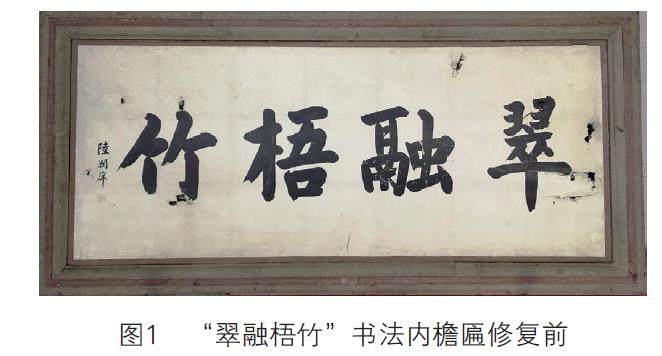 翠融梧竹
陸潤庠
图1 “翠融梧竹”书法内檐匾修复前